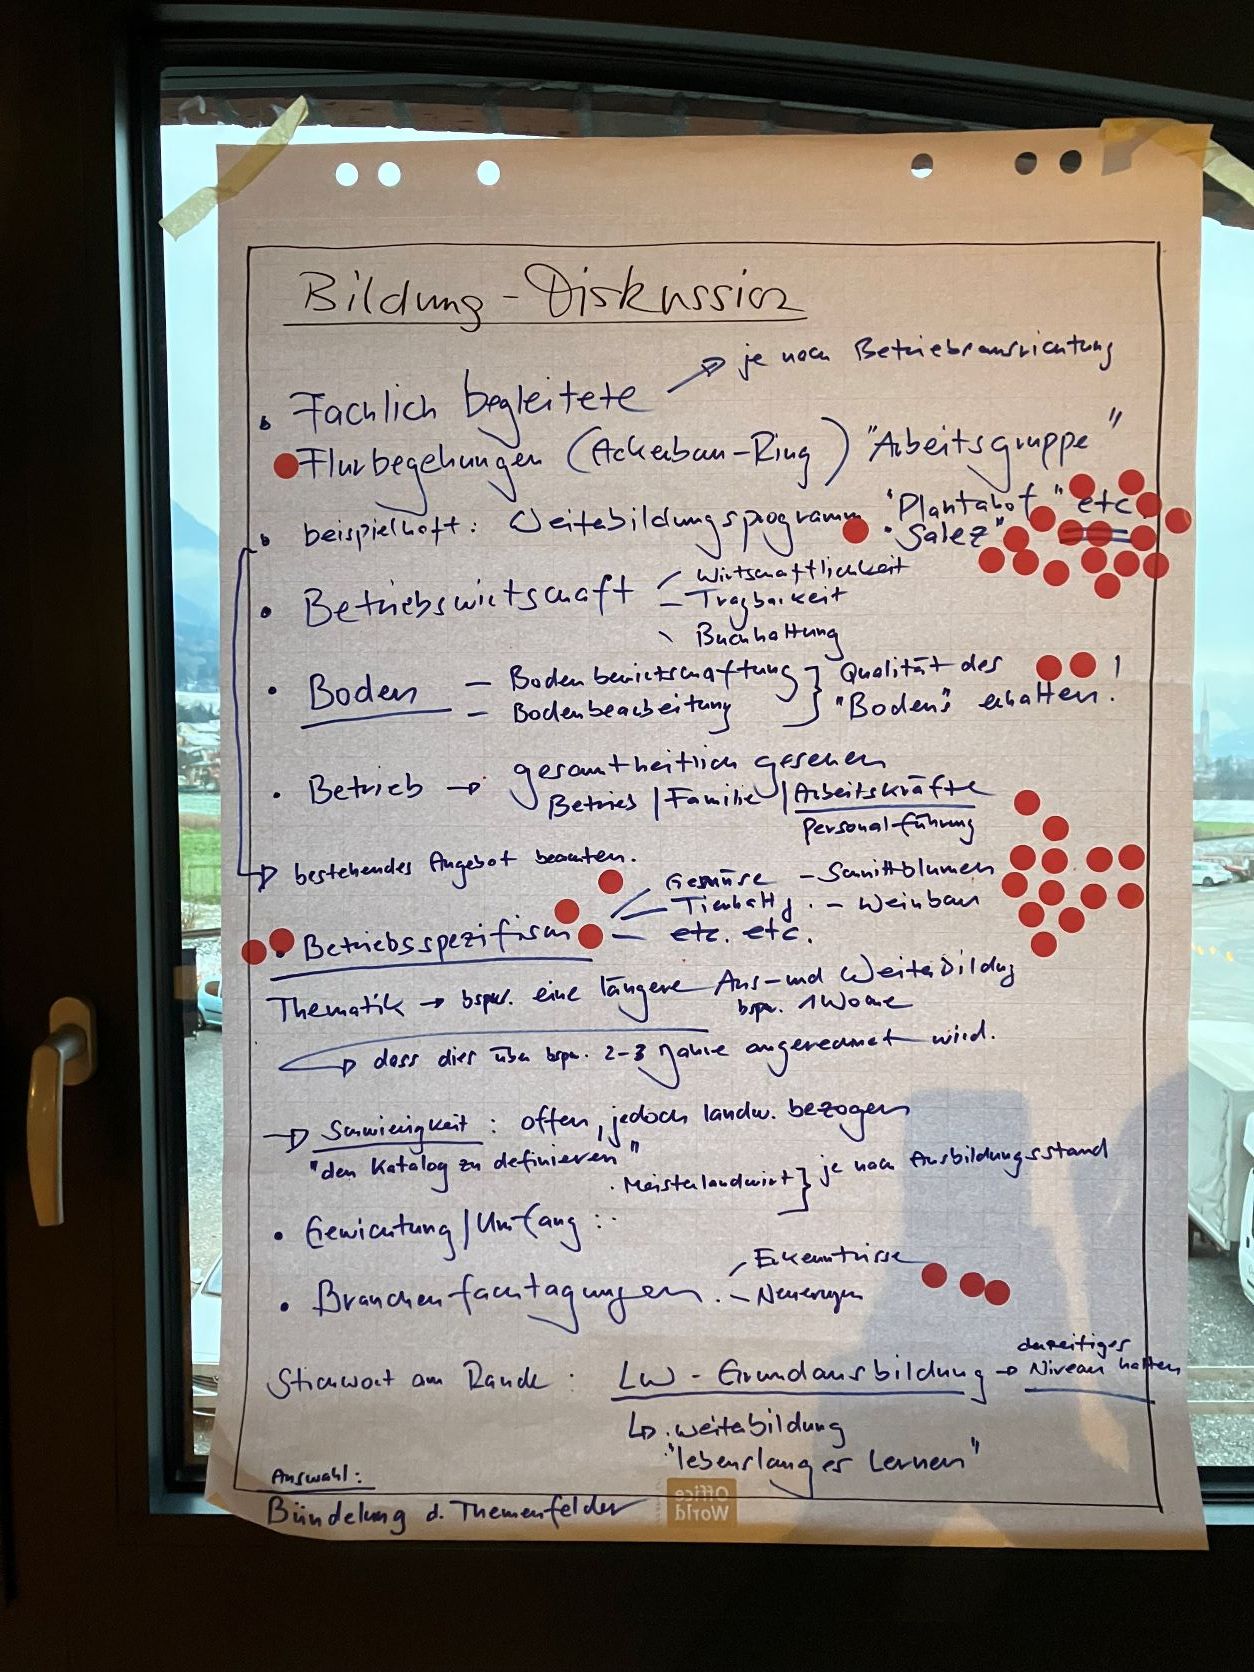 Bildung - Diskussion
• Fachlich begleitete → je nach Betriebsausrichtung
Flurbegehungen (Ackerbau-Ring) "Arbeitsgruppe"
• beispielhaft: Weiterbildungsprogramm "Plantahof" etc.
• Salez"
• Betriebswirtschaft - Wirtschaftlichkeit
- Tragbarkeit
- Buchhaltung
• Boden - Bodenbewirtschaftung } Qualität des
- Bodenbearbeitung "Bodens" erhalten!
• Betrieb → gesamtheitlich gesehen
Betrieb / Familie / Arbeitskräfte
Personalführung
→ bestehendes Angebot beachten.
- Gemüse - Schnittblumen
- Tierhaltg. - Weinbau
• Betriebsspezifisch - etc. etc.
Thematik → bspw. eine längere Aus- und Weiterbildung
bspw. 1 Woche
→ dass dies über bspw. 2-3 Jahre angerechnet wird.
→ Schwierigkeit: offen, jedoch landw. bezogen
"den Katalog zu definieren"
• Meisterlandwirt } je nach Ausbildungsstand
• Gewichtung / Umfang:
• Branchenfachtagungen. - Erkenntnisse
- Neuerungen
Stichwort am Rande: LW - Grundausbildung → derzeitiges Niveau halten
↳ Weiterbildung
"lebenslanges Lernen"
Auswahl:
Bündelung d. Themenfelder
Office World